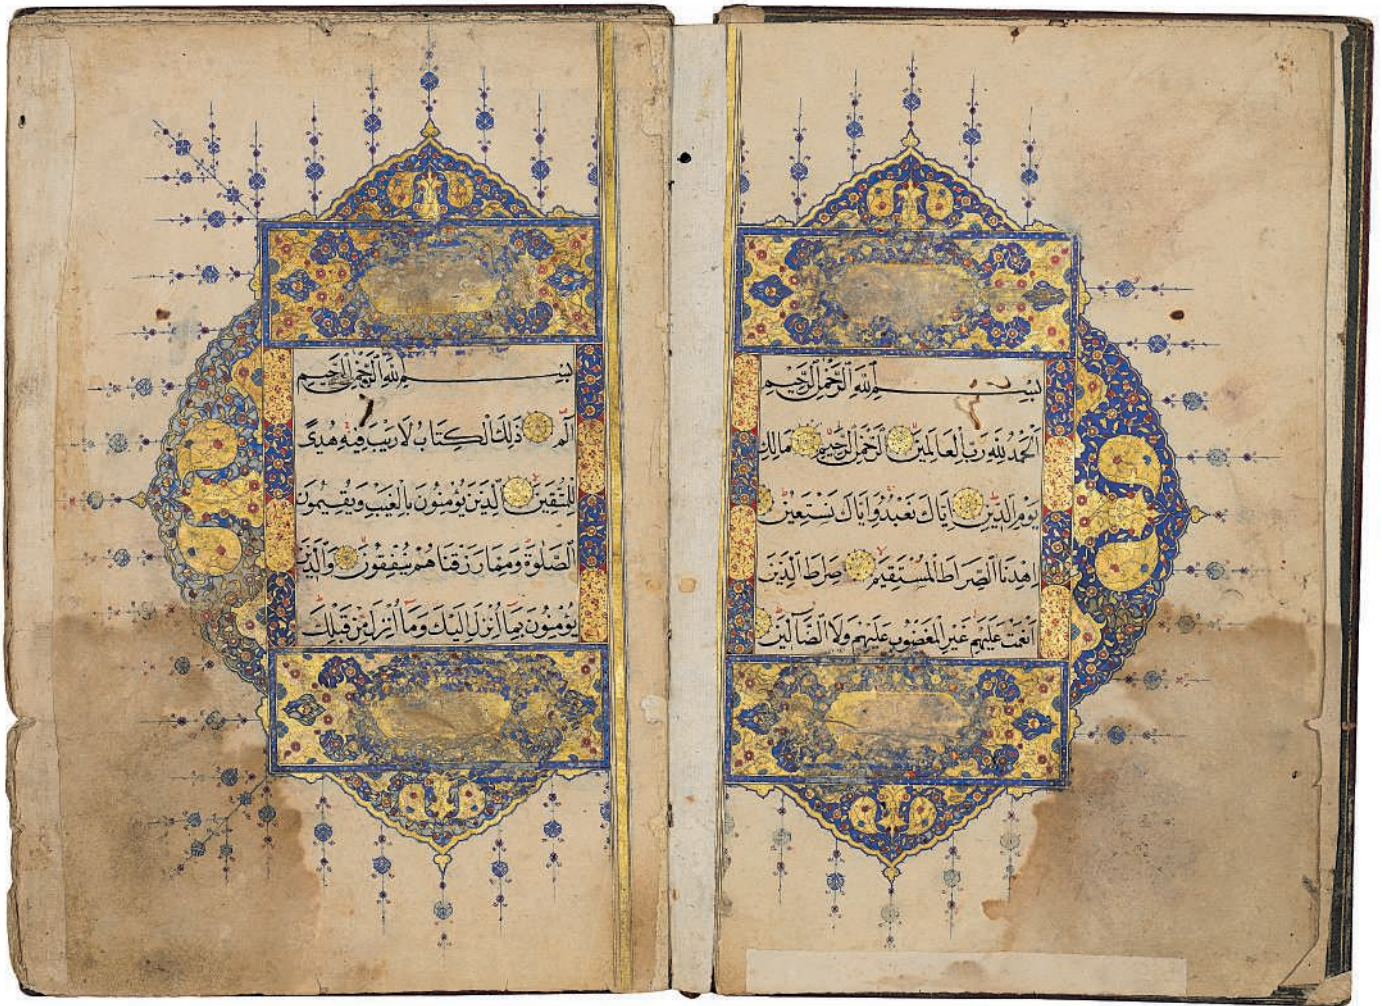 بِسْمِ اللَّهِ الرَّحْمَٰنِ الرَّحِيمِ
اَلْحَمْدُ لِلَّهِ رَبِّ الْعَالَمِينَ الرَّحْمَٰنِ الرَّحِيمِ مَالِكِ
يَوْمِ الدِّينِ اِيَّاكَ نَعْبُدُ وَاِيَّاكَ نَسْتَعِينُ
اِهْدِنَا الصِّرَاطَ الْمُسْتَقِيمَ صِرَاطَ الَّذِينَ
اَنْعَمْتَ عَلَيْهِمْ غَيْرِ الْمَغْضُوبِ عَلَيْهِمْ وَلَا الضَّالِّينَ
بِسْمِ اللَّهِ الرَّحْمَٰنِ الرَّحِيمِ
الٓمٓ ذَٰلِكَ الْكِتَابُ لَا رَيْبَ فِيهِ هُدًى
لِلْمُتَّقِينَ الَّذِينَ يُؤْمِنُونَ بِالْغَيْبِ وَيُقِيمُونَ
الصَّلٰوةَ وَمِمَّا رَزَقْنَاهُمْ يُنْفِقُونَ وَالَّذِينَ
يُؤْمِنُونَ بِمَا اُنْزِلَ اِلَيْكَ وَمَا اُنْزِلَ مِنْ قَبْلِكَ